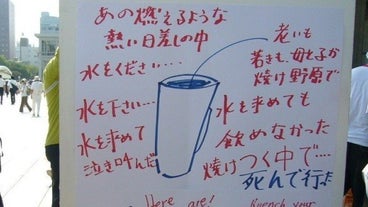 あの燃えるような
熱い日差しの中
水をください…
水を下さい…
水を求めて
泣き叫んだ
老いも
若きも、母と子が
焼け野原で
水を求めても
飲めなかった
焼けつく中で…
死んで行った
Here are!
Quench your